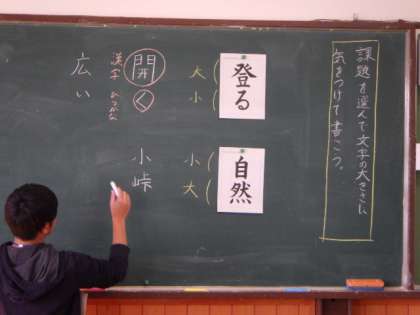 課題を選んで文字の大きさに
気をつけて書こう。
登る
大
小
自然
小
大
開く
漢字 ひらがな
小峠
広い